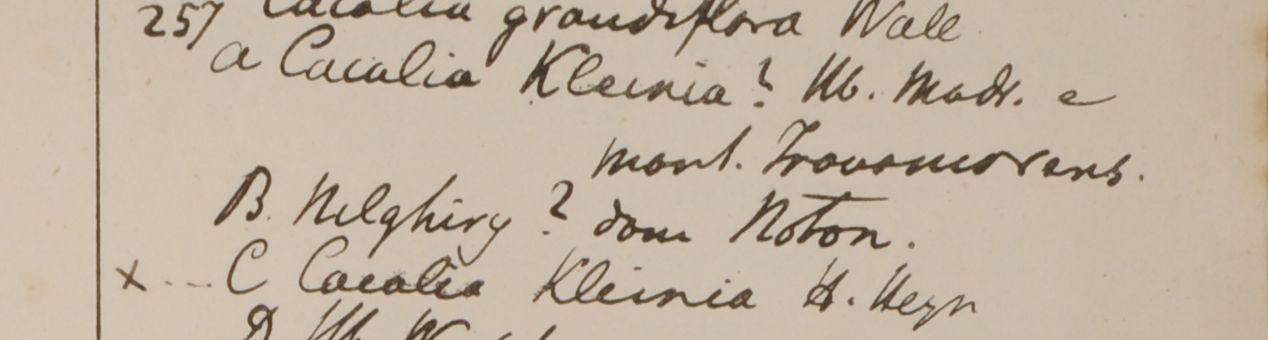 257 Cacalia grandiflora Wall
a Cacalia Kleinia? Hb. Madr. e
mont. Travancorens.
B. Nelghiry? dom Noton.
x... C Cacalia Kleinia H. Heyn
D Hb